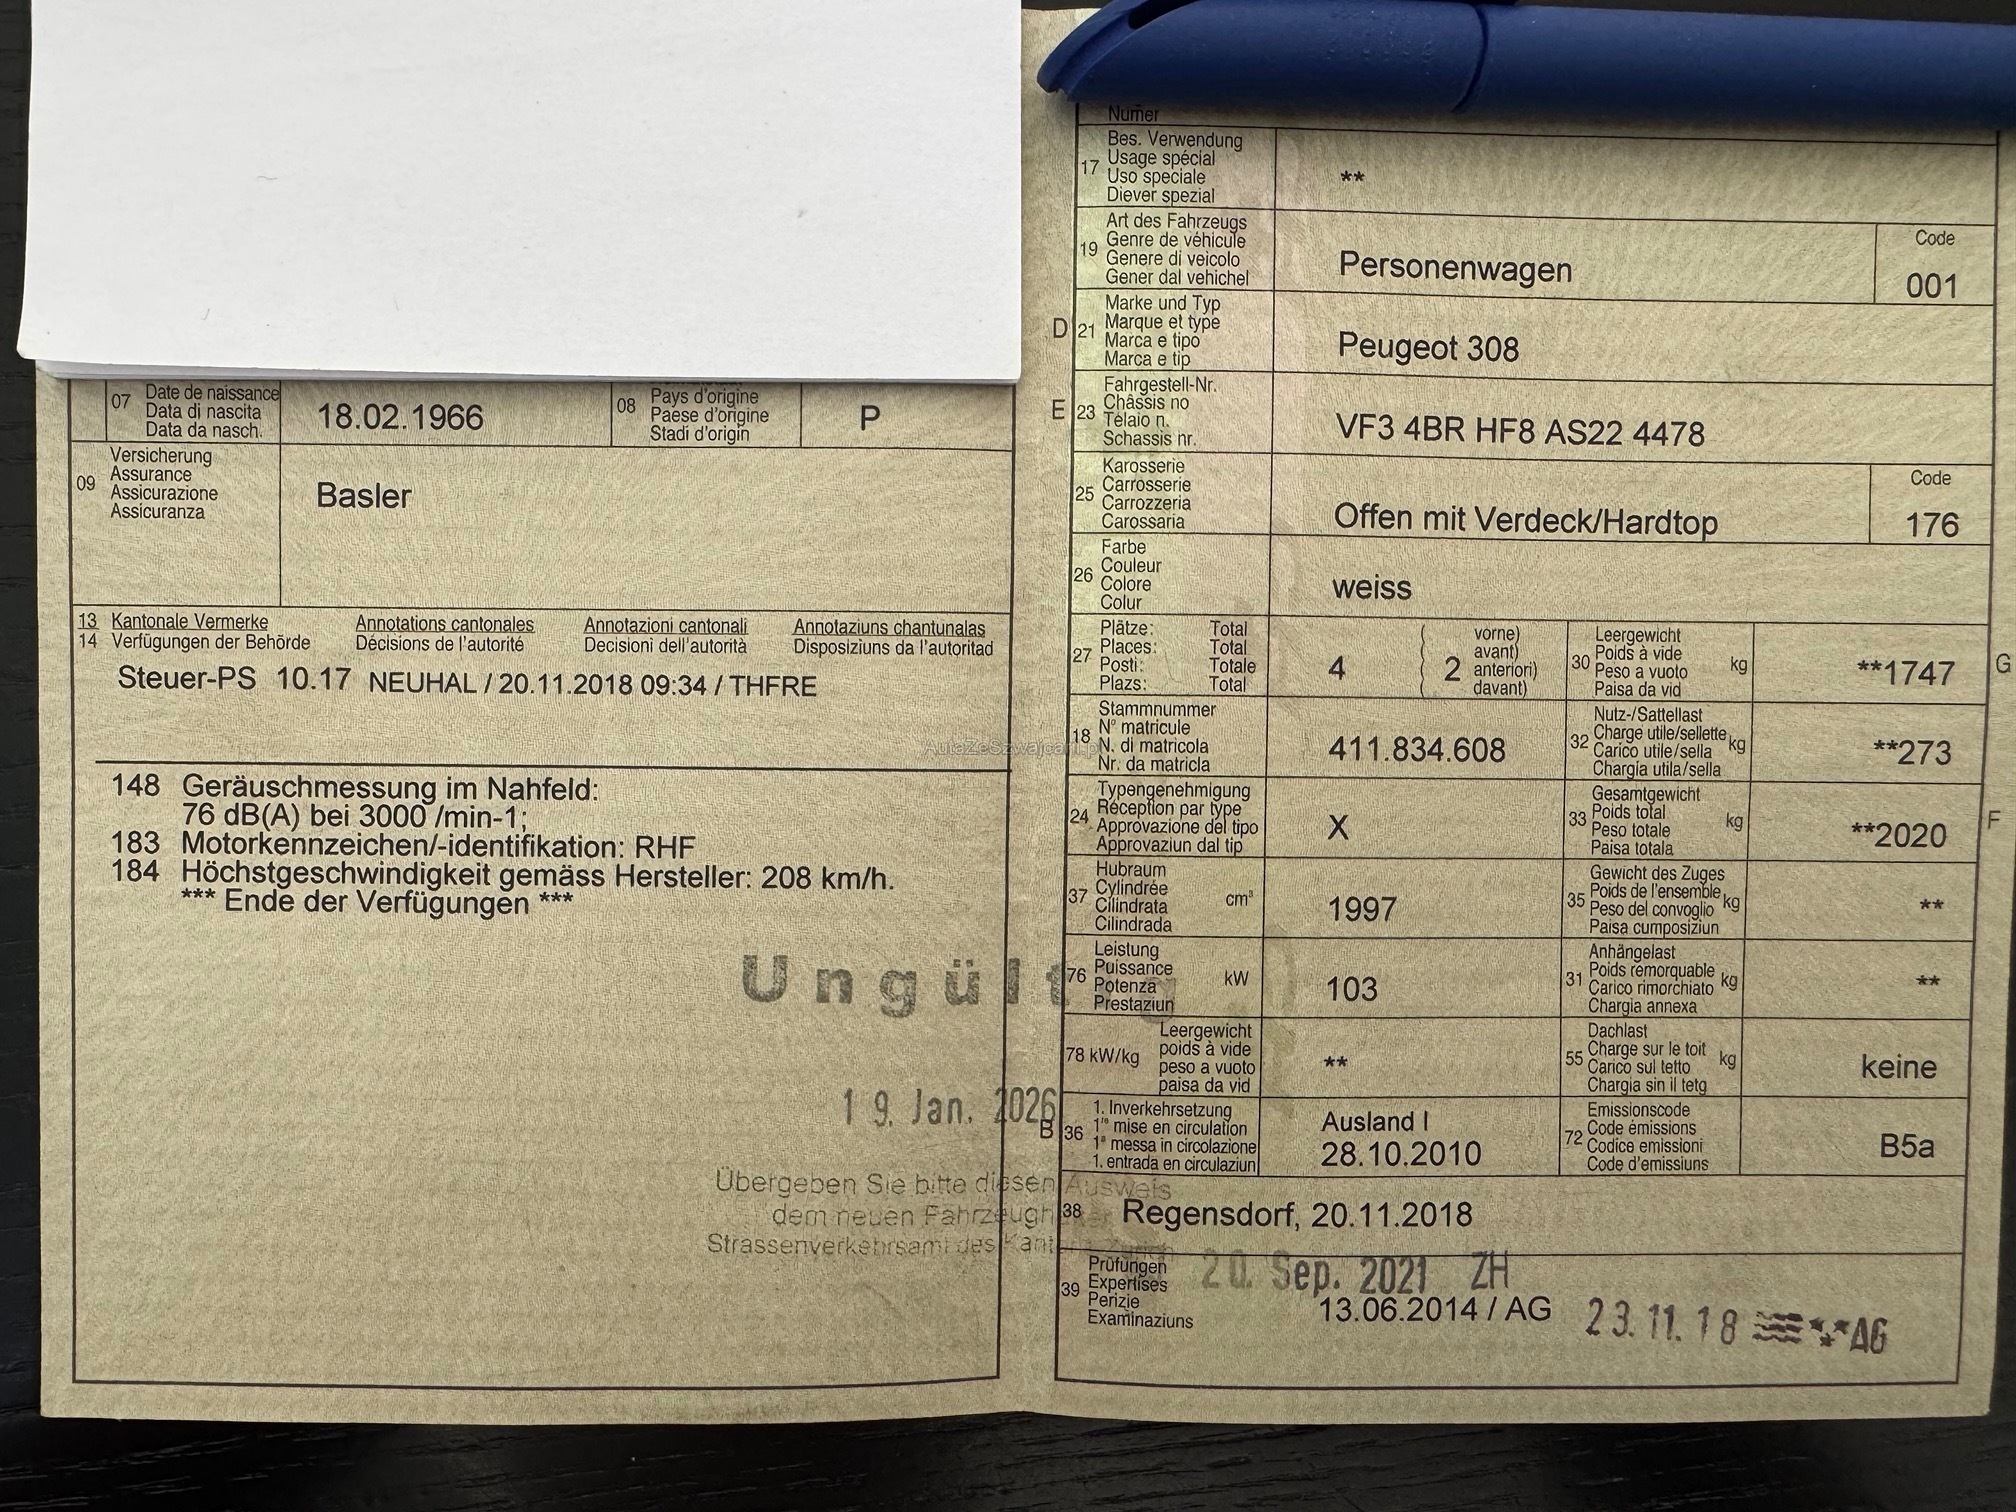 07 Date de naissance
Data di nascita
Data da nasch.
18.02.1966
08 Pays d'origine
Paese d'origine
Stadi d'origin
P
09 Versicherung
Assurance
Assicurazione
Assicuranza
Basler
13 Kantonale Vermerke Annotations cantonales Annotazioni cantonali Annotaziuns chantunalas
14 Verfügungen der Behörde Décisions de l'autorité Decisioni dell'autorità Disposiziuns da l'autoritad
Steuer-PS 10.17 NEUHAL / 20.11.2018 09:34 / THFRE
148 Geräuschmessung im Nahfeld:
76 dB(A) bei 3000 /min-1;
183 Motorkennzeichen/-identifikation: RHF
184 Höchstgeschwindigkeit gemäss Hersteller: 208 km/h.
*** Ende der Verfügungen ***
Ungült
19. Jan. 2026
Übergeben Sie bitte diesen Ausweis
dem neuen
Strassenverkehrsamt des
AutaZeSzwajcarii.pl
Numer
17 Bes. Verwendung
Usage spécial
Uso speciale
Diever spezial
**
19 Art des Fahrzeugs
Genre de véhicule
Genere di veicolo
Gener dal vehichel
Personenwagen
Code
001
D 21 Marke und Typ
Marque et type
Marca e tipo
Marca e tip
Peugeot 308
E 23 Fahrgestell-Nr.
Châssis no
Telaio n.
Schassis nr.
VF3 4BR HF8 AS22 4478
25 Karosserie
Carrosserie
Carrozzeria
Carossaria
Offen mit Verdeck/Hardtop
Code
176
26 Farbe
Couleur
Colore
Colur
weiss
27 Plätze: Total
Places: Total
Posti: Totale
Plazs: Total
4
2
vorne)
avant)
anteriori)
davant)
30 Leergewicht
Poids à vide
Peso a vuoto
Paisa da vid
kg
**1747
G
18 Stammnummer
N° matricule
N. di matricola
Nr. da matricla
411.834.608
32 Nutz-/Sattellast
Charge utile/sellette
Carico utile/sella
Chargia utila/sella
kg
**273
24 Typengenehmigung
Réception par type
Approvazione del tipo
Approvaziun dal tip
X
33 Gesamtgewicht
Poids total
Peso totale
Paisa totala
kg
**2020
F
37 Hubraum
Cylindrée
Cilindrata
Cilindrada
cm³
1997
35 Gewicht des Zuges
Poids de l'ensemble
Peso del convoglio
Paisa cumposiziun
kg
**
76 Leistung
Puissance
Potenza
Prestaziun
kW
103
31 Anhängelast
Poids remorquable
Carico rimorchiato
Chargia annexa
kg
**
78 kW/kg
Leergewicht
poids à vide
peso a vuoto
paisa da vid
**
55 Dachlast
Charge sur le toit
Carico sul tetto
Chargia sin il tetg
kg
keine
B 36 1. Inverkehrsetzung
1re mise en circulation
1a messa in circolazione
1. entrada en circulaziun
Ausland I
28.10.2010
72 Emissionscode
Code émissions
Codice emissioni
Code d'emissiuns
B5a
38 Regensdorf, 20.11.2018
39 Prüfungen
Expertises
Perizie
Examinaziuns
20. Sep. 2021 ZH
13.06.2014 / AG
23.11.18 AG